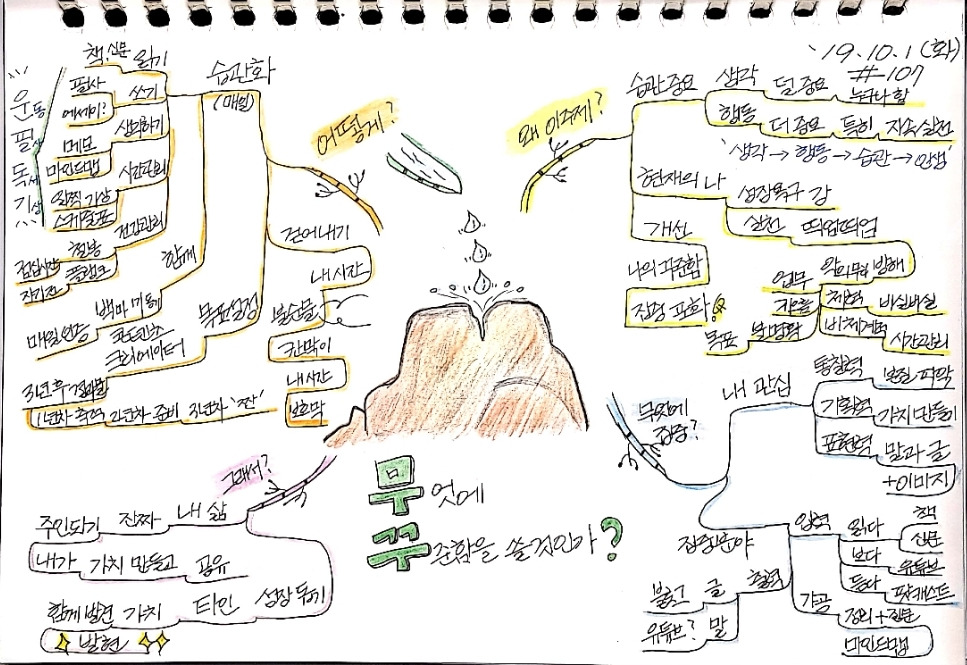 '19.10.1 (화)
#-107
무엇에
꾸준함을 쓸것인가?
왜 이주제?
습관 중요
생각 덜 중요 누구나 함
행동 더 중요 특히 지속/실천
'생각 → 행동 → 습관 → 인생'
현재의 나
성장욕구 강
실천 띄엄띄엄
방해
업무
체력 비실비실
비체계적 시간관리
목표 불명확
개선
나의 꾸준함
집행
무엇에 집중?
내 관심
통찰력 본질 파악
기획력 가치 만들기
표현력 말과 글
+이미지
집행분야
입력
읽다 책
신문
보다 유튜브
듣다 팟캐스트
가공
정리+질문
마인드맵
출력
글 블로그
말 유튜브?
그래서?
내 삶 진짜 주인되기
내가 가치 만들고 공유
성장 돕기 타인 가치 함께 발견
발현
어떻게?
습관화
(매일)
읽기 책, 신문
쓰기 필사
에세이?
생각하기 메모
마인드맵
시간관리
스케쥴표
건강관리 철봉
플랭크
함께
백마 미동체
매일인증
목표설정
크리에이터
3년후
1년차 2년차 준비 3년차 '짠'
걷어내기
내 시간
불순물
칸막이
내시간
보호막
운동
필사
독서
기상